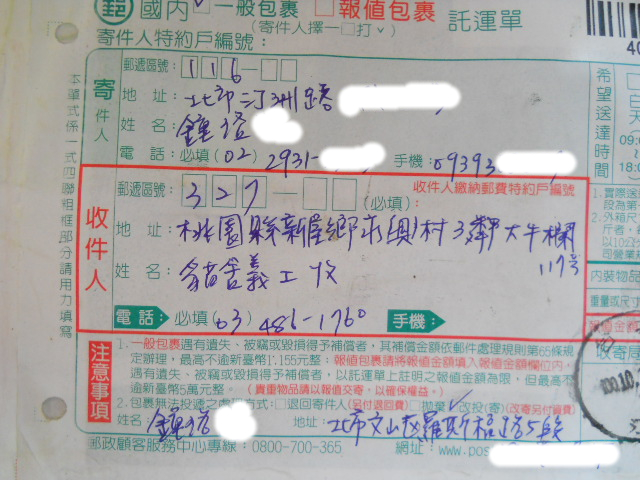 郵 國內 ✓一般包裹 □報值包裹 託運單
(寄件人擇一□打✓)
寄件人特約戶編號:
本單式係一式四聯粗框部分請用力填寫
寄件人
郵遞區號: 116-□□
地 址: 北市汀洲路
姓 名:
電 話: 必填(02) 2931- 手機: 09393
希望送達時
09:0
18:0
收件人
收件人繳納郵費特約戶編號
郵遞區號: 327-□□ (必填):
地 址: 桃園縣新屋鄉永興村3鄰大牛欄
117号
姓 名: 貓舍義工收
電話: 必填(03) 486-1760 手機:
內裝物品
重量或尺寸
報值金額
收寄局
注意事項
1.一般包裹遇有遺失、被竊或毀損得予補償者,其補償金額依郵件處理規則第65條規
定辦理,最高不逾新臺幣1,155元整;報值包裹請將報值金額填入報值金額欄位內,
遇有遺失、被竊或毀損得予補償者,以託運單上註明之報值金額為限,但最高不
逾新臺幣5萬元整。(貴重物品請以報值交寄,以確保權益。)
2.包裹無法投遞之處理方式:□退回寄件人(另付退回費) □拋棄 ✓改投(寄)(改寄另付資費)
姓名 地址: 北市文山区羅斯福路5段
郵政顧客服務中心專線:0800-700-365 網址:www.pos